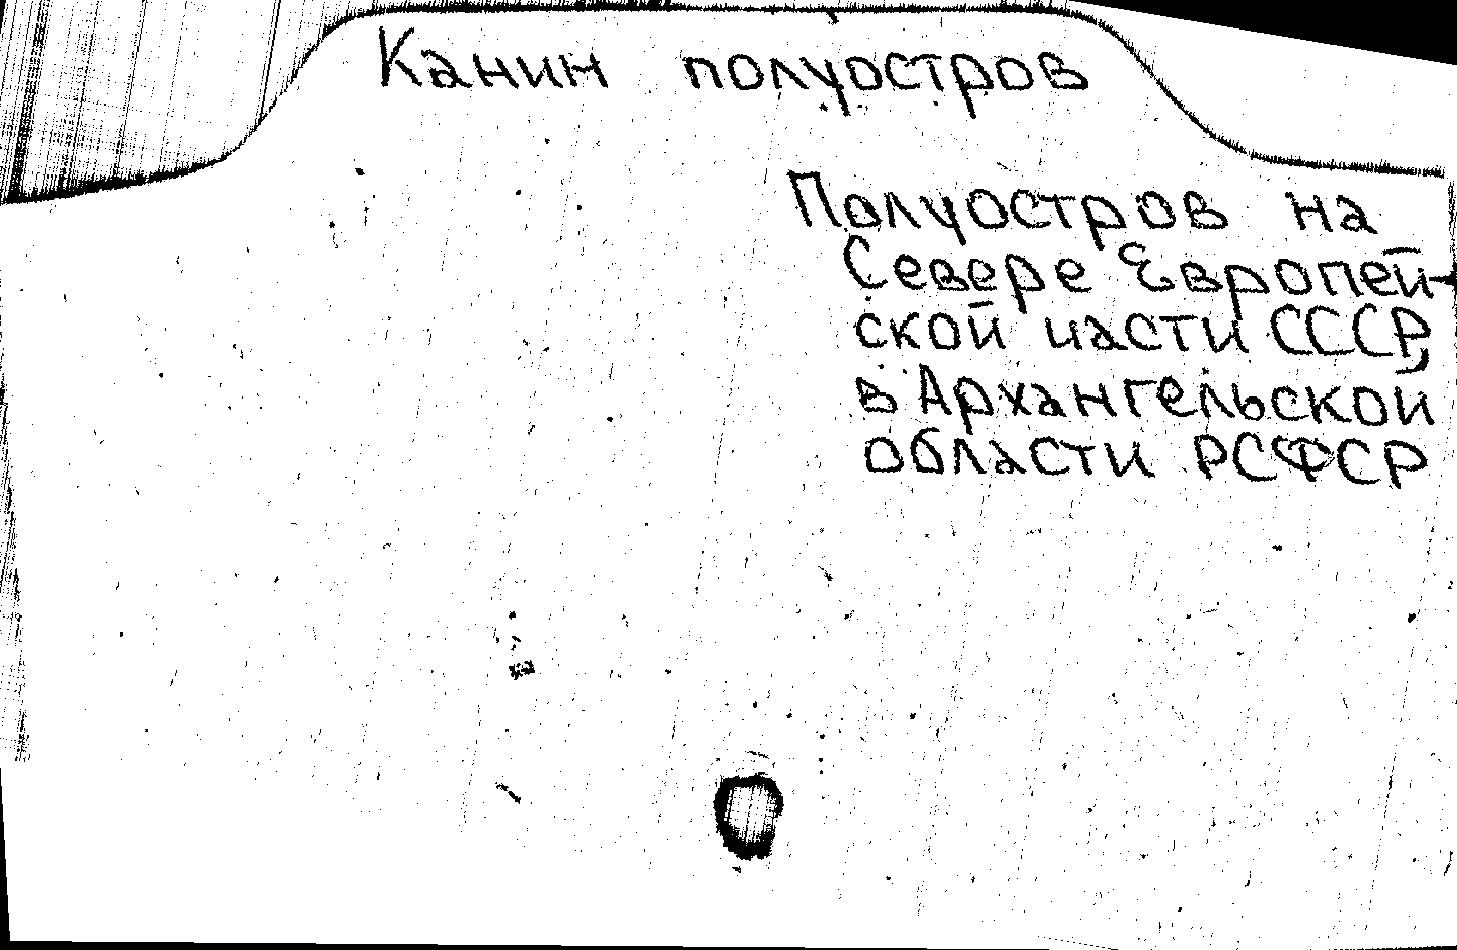 Канин полуостров
Полуостров на
Севере Европей-
ской части СССР,
в Архангельской
области РСФСР